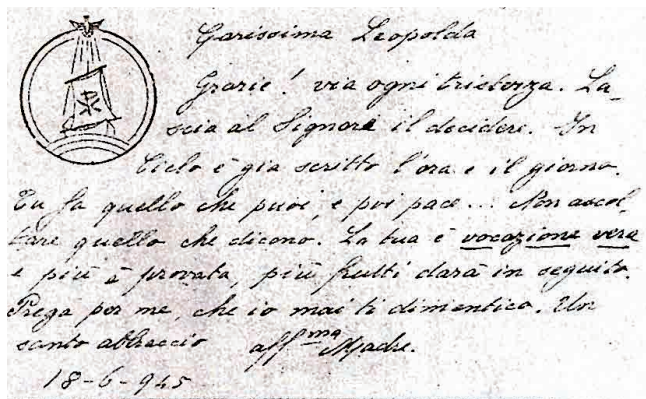 Carissima Leopolda
Grazie! via ogni tristezza. La-
scia al Signore il decidere. In
Cielo è già scritto l'ora e il giorno.
Tu fa quello che puoi, e poi pace... Non ascol-
tare quello che dicono. La tua è vocazione vera
e più è provata, più frutti darà in seguito.
Prega per me, che io mai ti dimentico. Un
santo abbraccio aff.ma Madre.
18-6-945